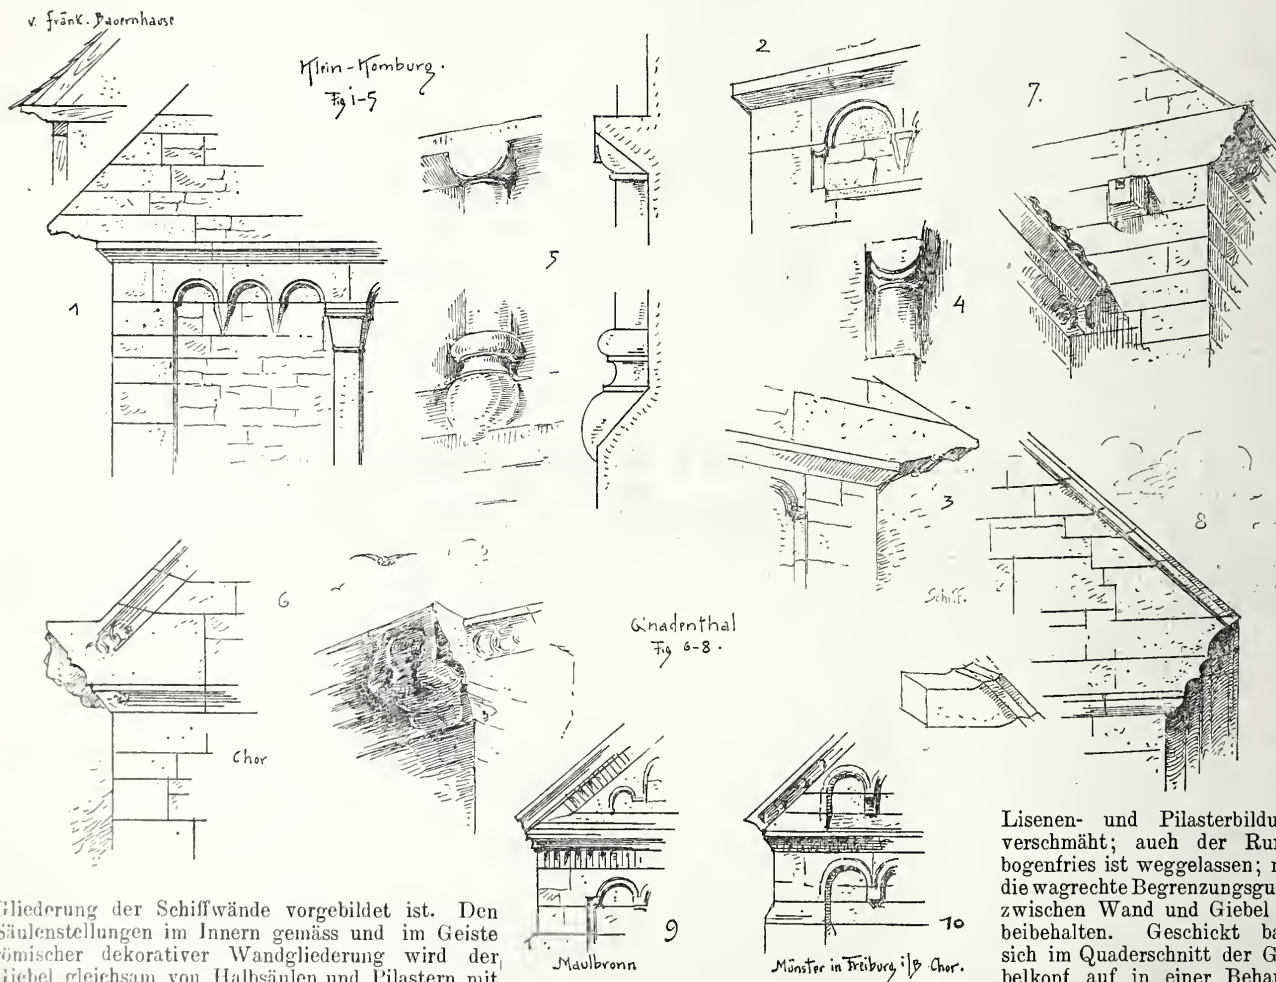 v. fränk. Bauernhause
Klein-Komburg.
Fig 1-5
2
7.
5
4
1
3
8
Schiff.
6
Gnadenthal
Fig 6-8.
Chor
9
10
Maulbronn
Münster in Freiburg i/B Chor.
Gliederung der Schiffwände vorgebildet ist. Den
Säulenstellungen im Innern gemäss und im Geiste
römischer dekorativer Wandgliederung wird der
Giebel gleichsam von Halbsäulen und Pilastern mit
Lisenen- und Pilasterbildu
verschmäht; auch der Run
bogenfries ist weggelassen;
die wagrechte Begrenzungsgu
zwischen Wand und Giebel
beibehalten. Geschickt ba
sich im Quaderschnitt der G
belkopf auf in einer Behar